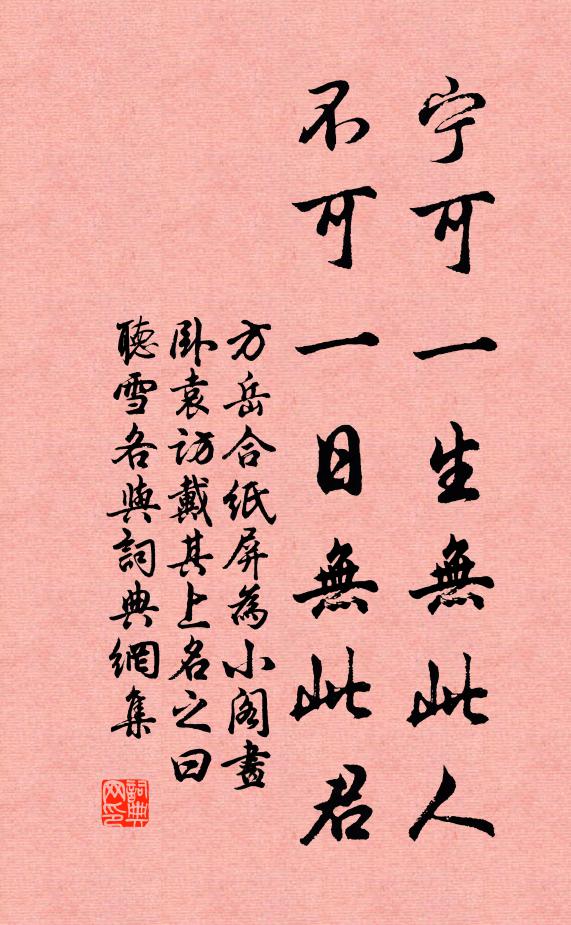 宁可一生無此人
不可一日無此君
方岳合紙屏為小閣畫
卧袁訪戴其上名之曰
聽雪各與詞典網集
詞典
网印